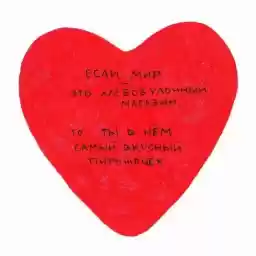 ЕСЛИ МИР
ЭТО ХЛЕБОБУЛОЧНЫЙ
МАГАЗИН
ТО ТЫ В НЕМ
САМЫЙ ВКУСНЫЙ
ПИРОЖОЧЕК